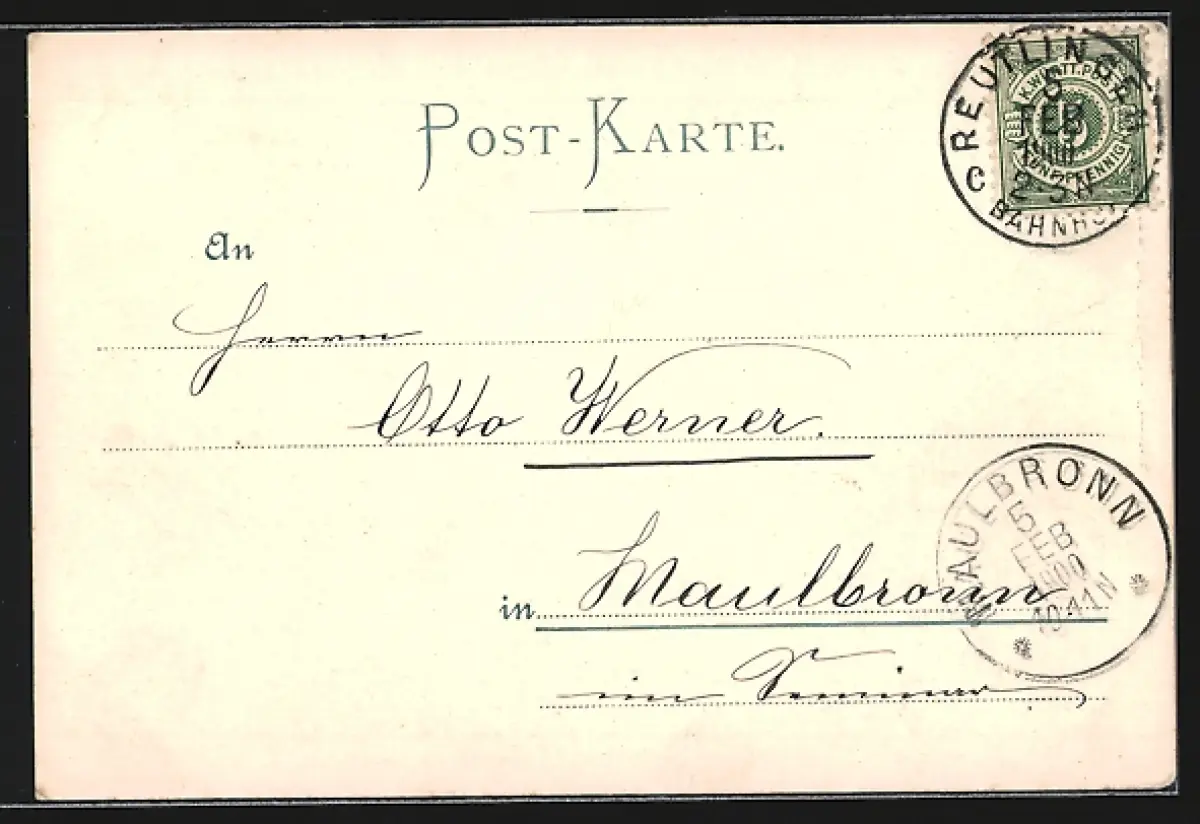 POST-KARTE.
REUTLINGEN
K.WÜRTT.POST
5
FEB
1900
FÜNF PFENNIG
2-3N
C BAHNHOF
An
Herrn
Otto Werner.
MAULBRONN
5
FEB
1900
10-11N
in Maulbronn
im Seminar